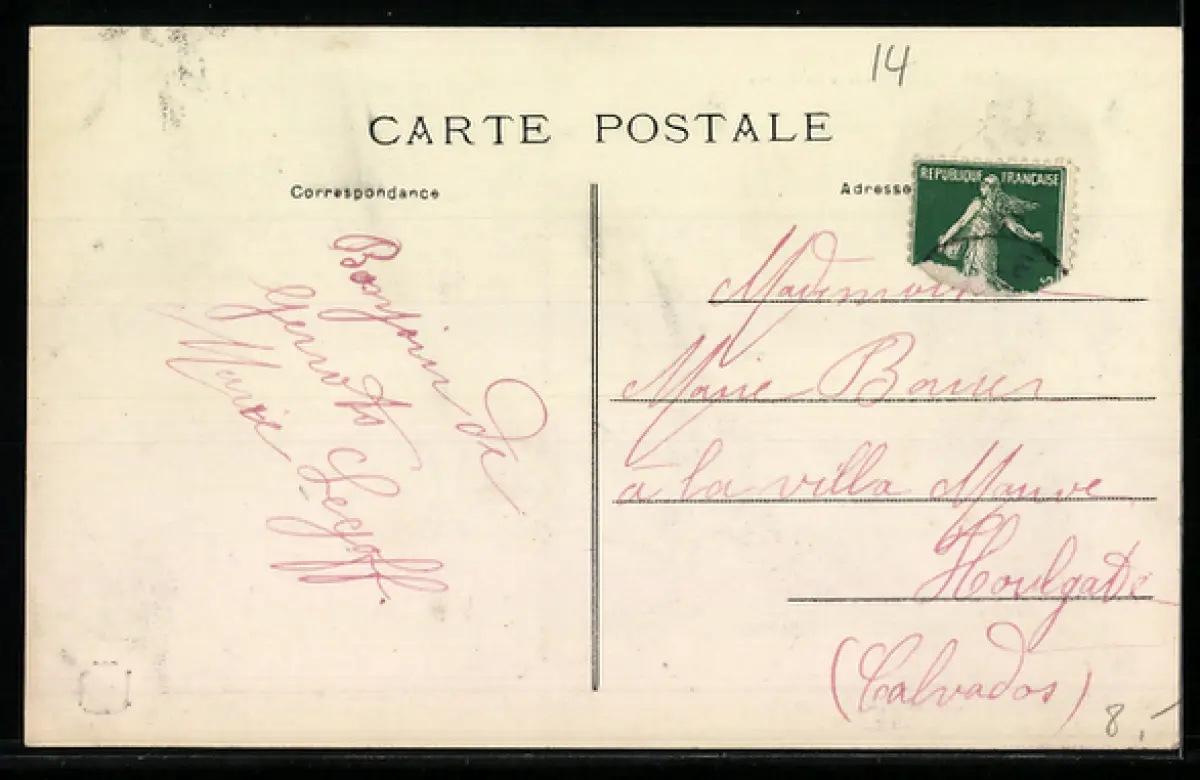 14
CARTE POSTALE
Correspondance
Adresse
REPUBLIQUE FRANÇAISE
5
Bonjour de
Legoff.
Marie
Mademoiselle
Marie
à la villa Mauve
Houlgate
(Calvados)
8,-